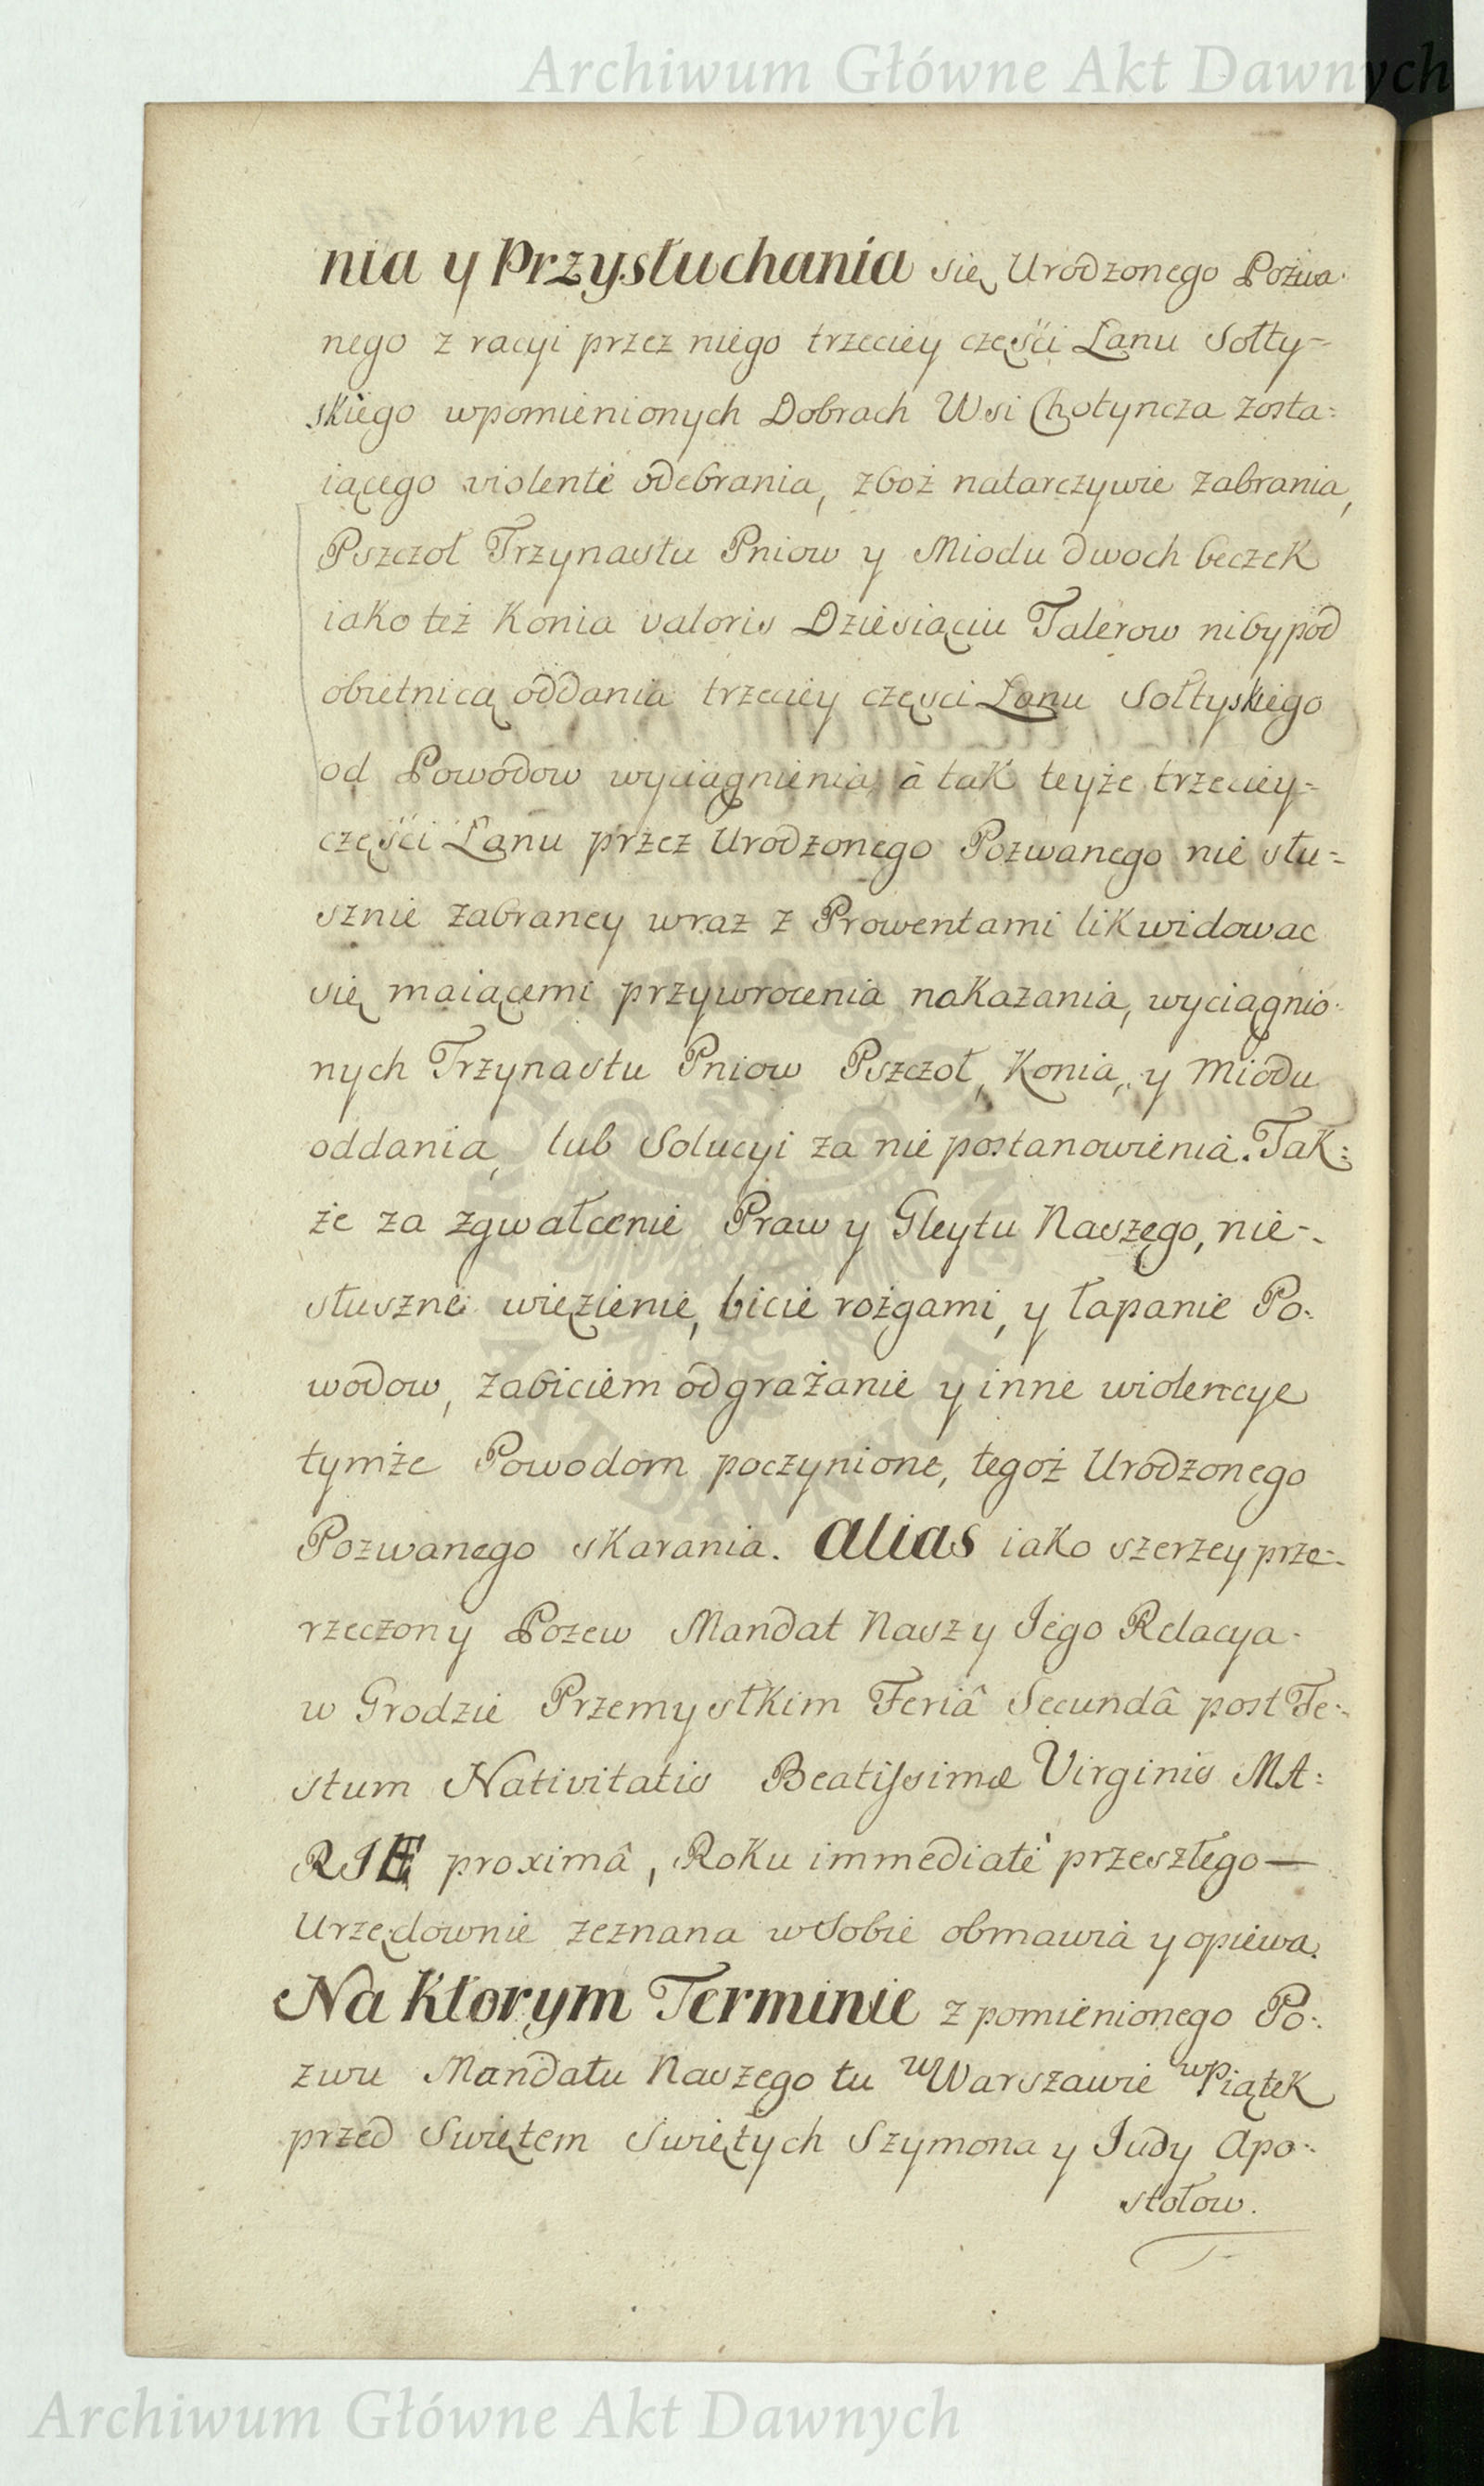 Archiwum Główne Akt Dawnych
nia y Przysłuchania się Urodzonego Pozwa-
nego z racyi przez niego trzeciey częśći Łanu Sołty-
skiego wpomienionych Dobrach Wsi Chotyncza zosta-
iącego violenté odebrania, zboż natarczywie zabrania,
Pszczoł Trzynastu Pniow y Miodu dwoch beczek
iako też Konia valoris Dziesiąciu Talerow niby pod
obietnicą oddania trzeciey częsci Łanu Sołtyskiego
od Powodow wyciągnienia, à tak teyże trzeciey-
częśći Łanu przez Urodzonego Pozwanego nie słu-
sznie zabraney wraz z Prowentami likwidowac
się maiącemi przywrocenia nakazania, wyciągnio-
nych Trzynastu Pniow Pszczoł, Konia, y Miodu
oddania, lub Solucyi za nie postanowienia. Tak-
że za zgwałcenie Praw y Gleytu Naszego, nie-
słuszne więzienie, bicie rożgami, y łapanie Po-
wodow, zabiciem odgrażanie y inne wiolencye
tymże Powodom poczynione, tegoż Urodzonego
Pozwanego skarania. Alias iako szerzey prze-
rzeczony Pozew Mandat Nasz y Jego Relacya
w Grodzie Przemyslkim Feriâ Secundâ post Fe-
stum Nativitatis Beatissimæ Virginis MA-
RIÆ proximâ, Roku immediaté przeszłego —
Urzędownie zeznana w Sobie obmawia y opiewa.
Na Ktorym Terminie z pomienionego Po-
zwu Mandatu Naszego tu w Warszawie w Piątek
przed Swiętem Swiętych Szymona y Judy Apo-
stołow.
Archiwum Główne Akt Dawnych